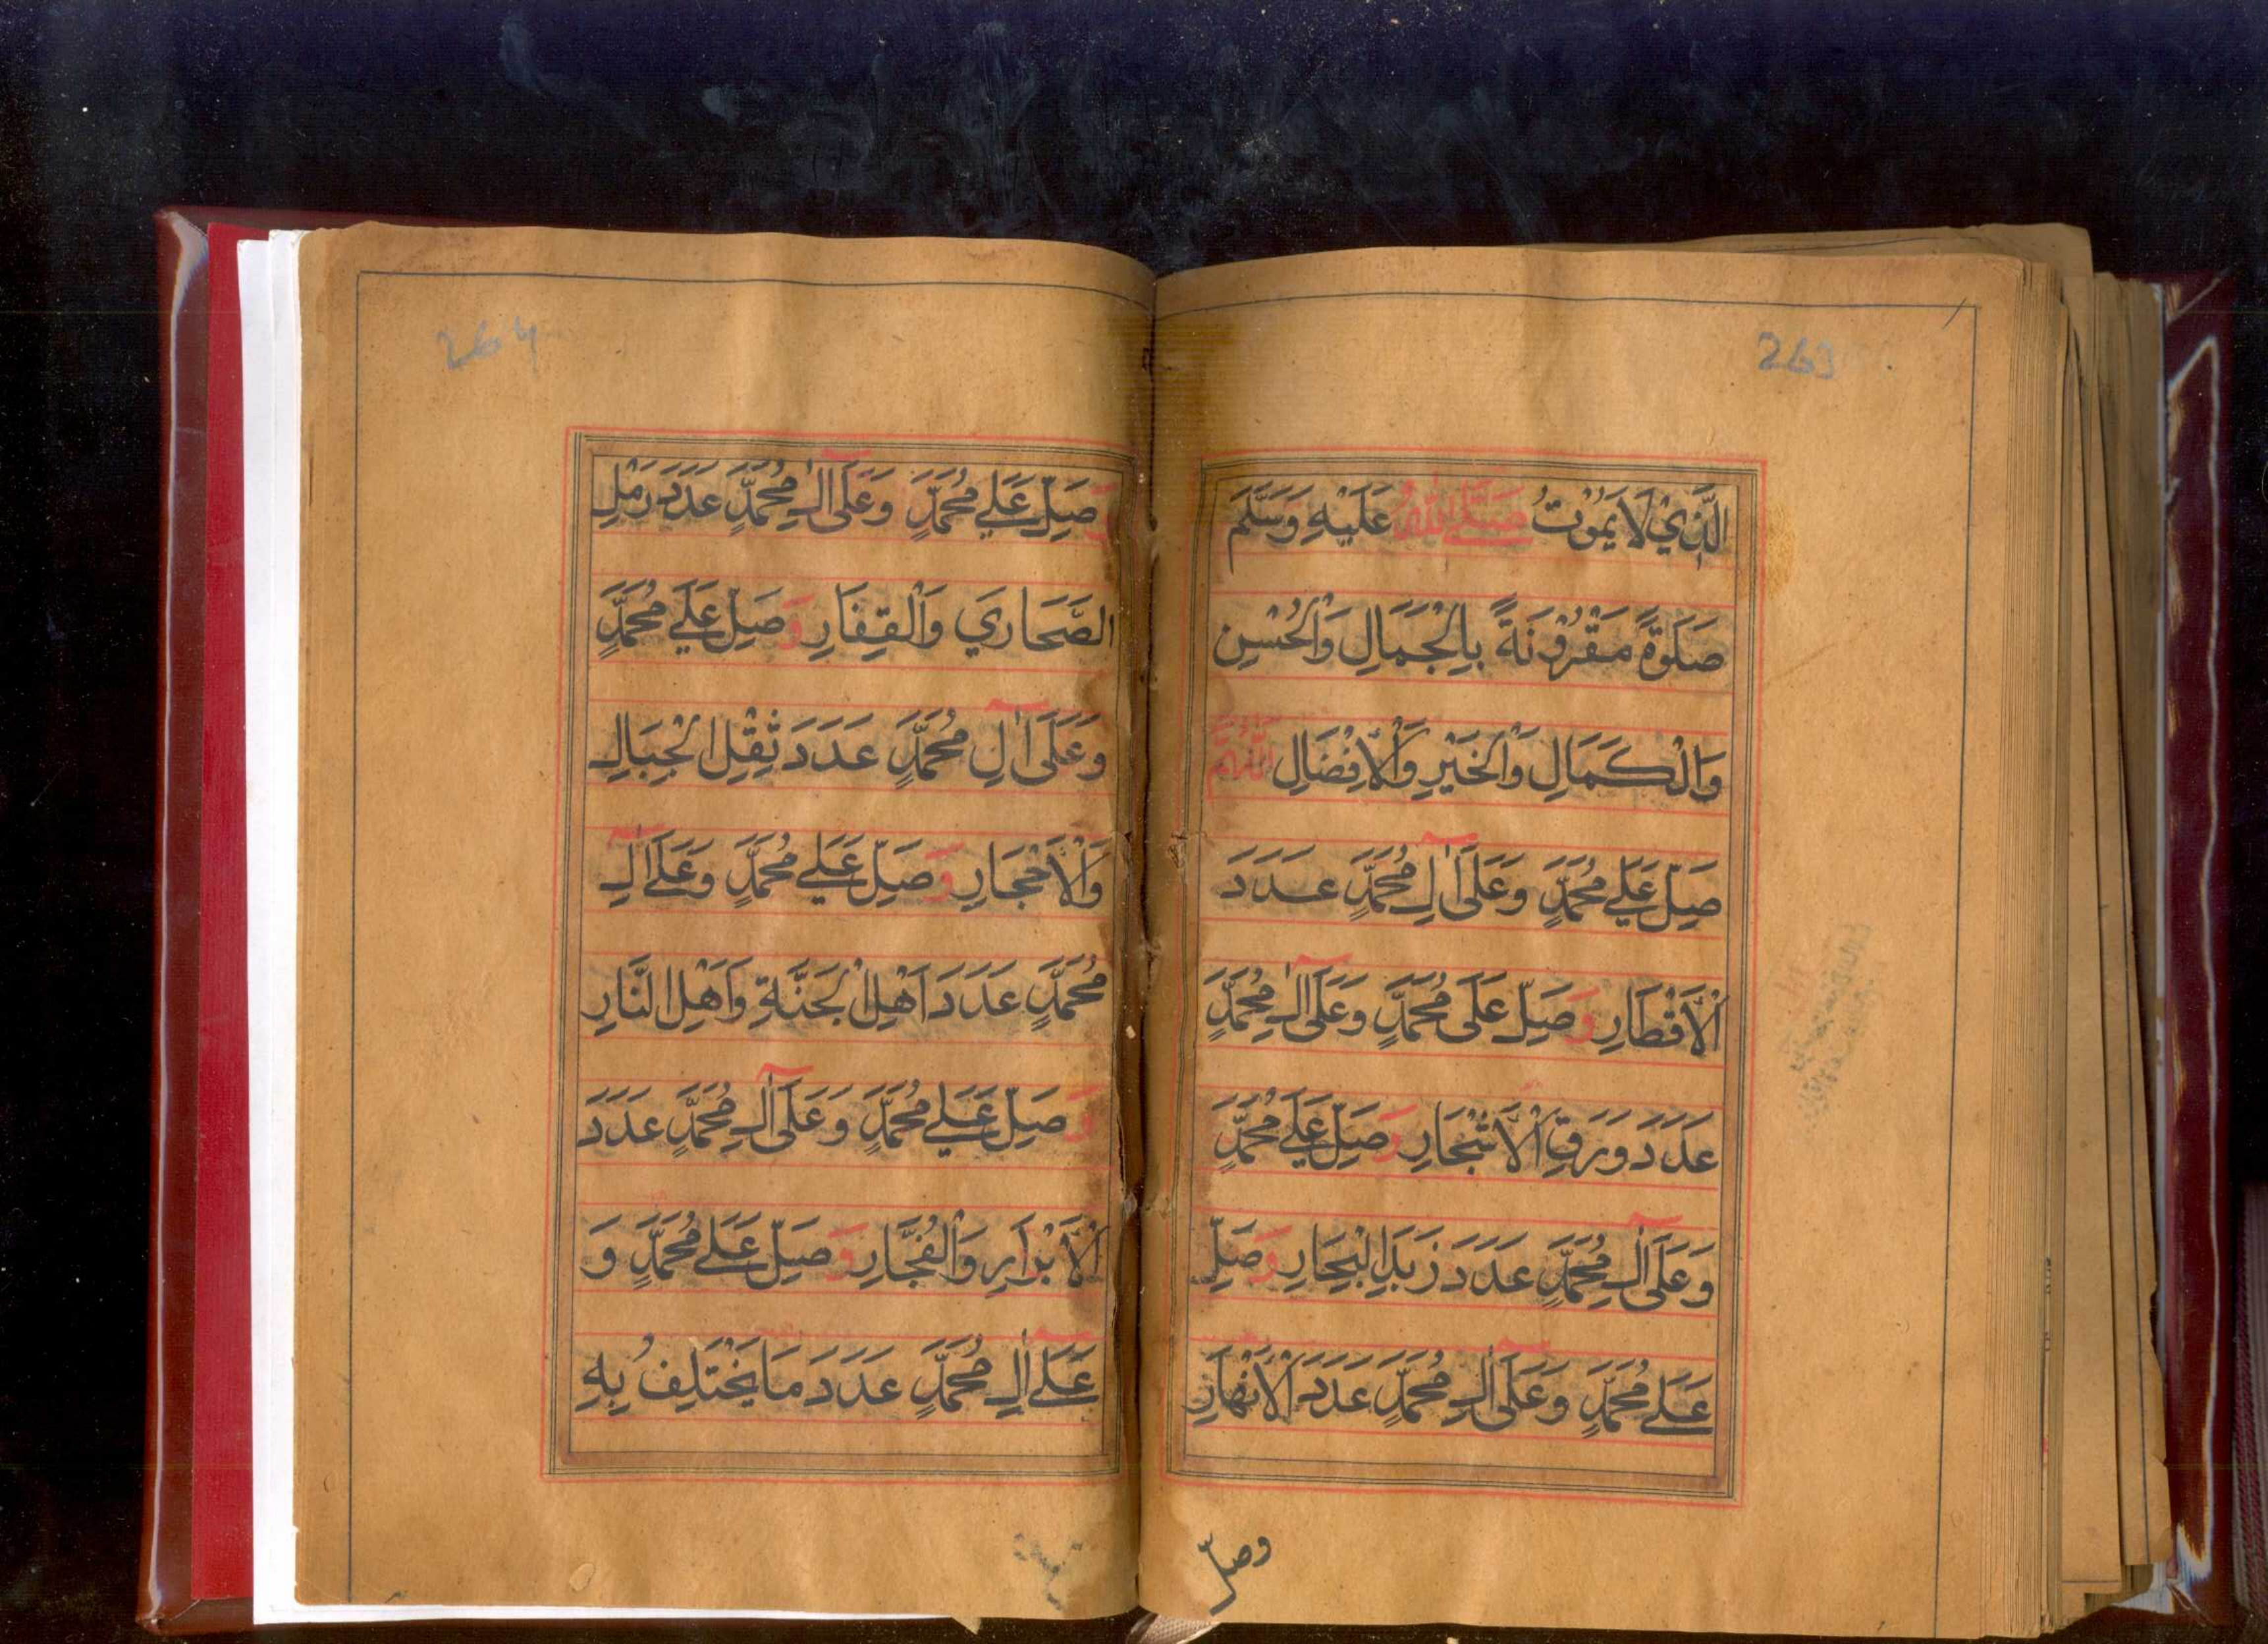 263
الَّذِيْ لَا يَمُوْتُ صَلَّى اللهُ عَلَيْهِ وَسَلَّمَ
صَلٰوةً مَقْرُوْنَةً بِالْجَمَالِ وَالْحُسْنِ
وَالْكَمَالِ وَالْخَيْرِ وَالْاِفْضَالِ اَللّٰهُمَّ
صَلِّ عَلٰي مُحَمَّدٍ وَعَلَى اٰلِ مُحَمَّدٍ عَدَدَ
الْاَقْطَارِ وَصَلِّ عَلَى مُحَمَّدٍ وَعَلَى اٰلِ مُحَمَّدٍ
عَدَدَ وَرَقِ الْاَشْجَارِ وَصَلِّ عَلَي مُحَمَّدٍ
وَعَلَى اٰلِ مُحَمَّدٍ عَدَدَ زَبَدِ الْبِحَارِ وَصَلِّ
عَلَے مُحَمَّدٍ وَعَلَى اٰلِ مُحَمَّدٍ عَدَدَ الْاَنْهَارِ
وصلّ
264
وَصَلِّ عَلَي مُحَمَّدٍ وَعَلَى اٰلِ مُحَمَّدٍ عَدَدَ رَمْلِ
الصَّحَارِيَ وَالْقِفَارِ وَصَلِّ عَلَي مُحَمَّدٍ
وَعَلَى اٰلِ مُحَمَّدٍ عَدَدَ ثِقْلِ الْجِبَالِ
وَالْاَحْجَارِ وَصَلِّ عَلَي مُحَمَّدٍ وَعَلَے اٰلِ
مُحَمَّدٍ عَدَدَ اَهْلِ الْجَنَّةِ وَاَهْلِ النَّارِ
وَصَلِّ عَلَي مُحَمَّدٍ وَعَلَى اٰلِ مُحَمَّدٍ عَدَدَ
الْاَبْرَارِ وَالْفُجَّارِ وَصَلِّ عَلَے مُحَمَّدٍ وَ
عَلَے اٰلِ مُحَمَّدٍ عَدَدَ مَا يَخْتَلِفُ بِهِ